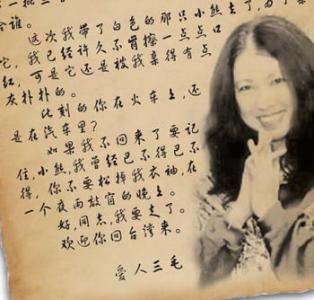 一批三
合谁。
这次我带了白色的那只小熊去了,为了亲
它,我已经许久不肯擦一点点口
红,可是它还是被我亲得有点
灰扑扑的。
此刻的你在火车上,还
是在汽车里?
如果我不回来了要记
住,小熊,我曾经巴不得巴不
得,你不要松掉我衣袖,在
一个夜雨敲窗的晚上。
好,同志,我要走了。
欢迎你回台湾来。
爱人三毛